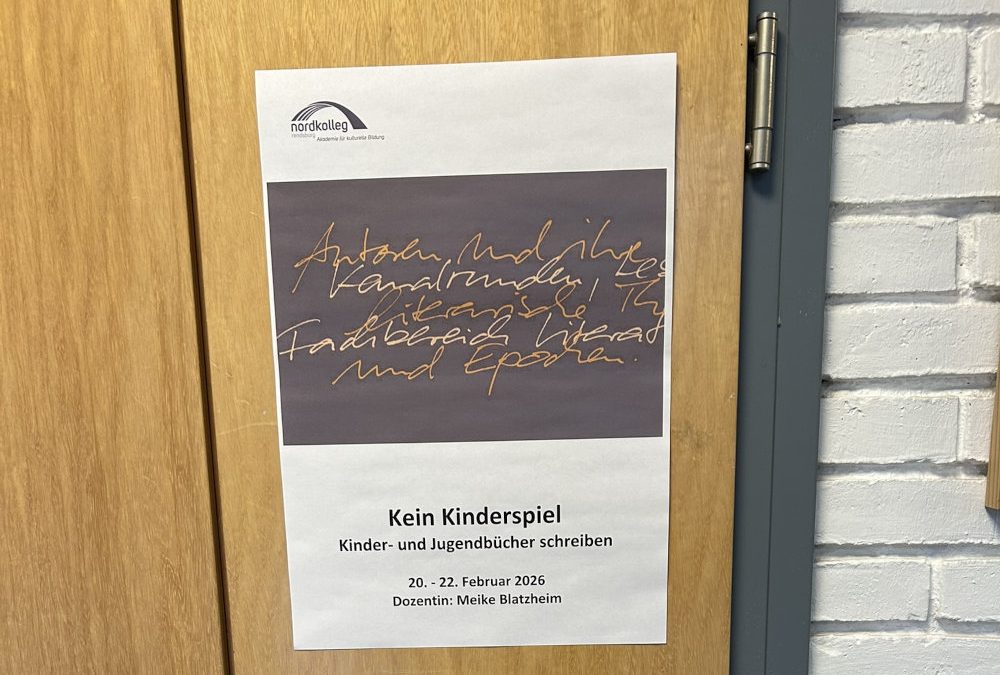 nordkolleg
rendsburg
Akademie für kulturelle Bildung
Autoren und ihre
Kanalrunden, Les
literarische Th
Fachbereich Literat
und Epochen.
Kein Kinderspiel
Kinder- und Jugendbücher schreiben
20. - 22. Februar 2026
Dozentin: Meike Blatzheim